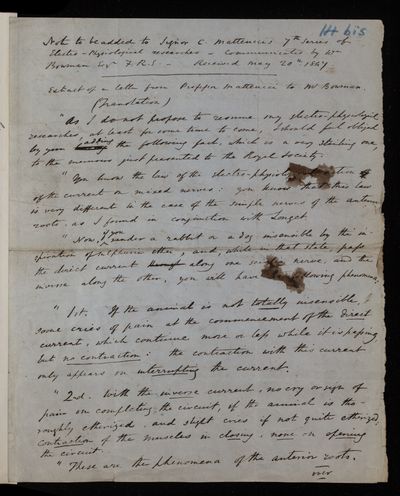 14 bis
Note to be added to Signor C. Matteucci's 7th Series of
Electro-Physiological researches - Communicated by Wm
Bowman Esqr F.R.S. - Received May 20th 1847
Extract of a letter from Professor Matteucci to Mr Bowman.
(Translation)
"As I do not propose to resume my electro-physiological
researches, at least for some time to come, I should feel obliged
by your adding the following fact, which is a very striking one,
to the memoirs just presented to the Royal Society.
"You know the law of the electro-physiolo action
of the current on mixed nerves: you know that this law
is very different in the case of the simple nerves of the anterior
roots, as I found in conjunction with Longet.
"Now, if you render a rabbit or a dog insensible by the in-
spiration of sulphuric ether, and, while in that state pass
the direct current along one nerve, and the
inverse along the other, you will have lowing phenomena,
"1st. If the animal is not totally insensible,
some cries of pain at the commencement of the direct
current, which continue more or less while it is passing
but no contraction: the contraction with this current
only appears on interrupting the current.
"2nd. With the inverse current, no cry or sign of
pain on completing the circuit, if the animal is tho-
roughly etherized, and slight cries if not quite etherized;
contraction of the muscles in closing, none on opening
the circuit.
"These are the phenomena of the anterior roots.
over